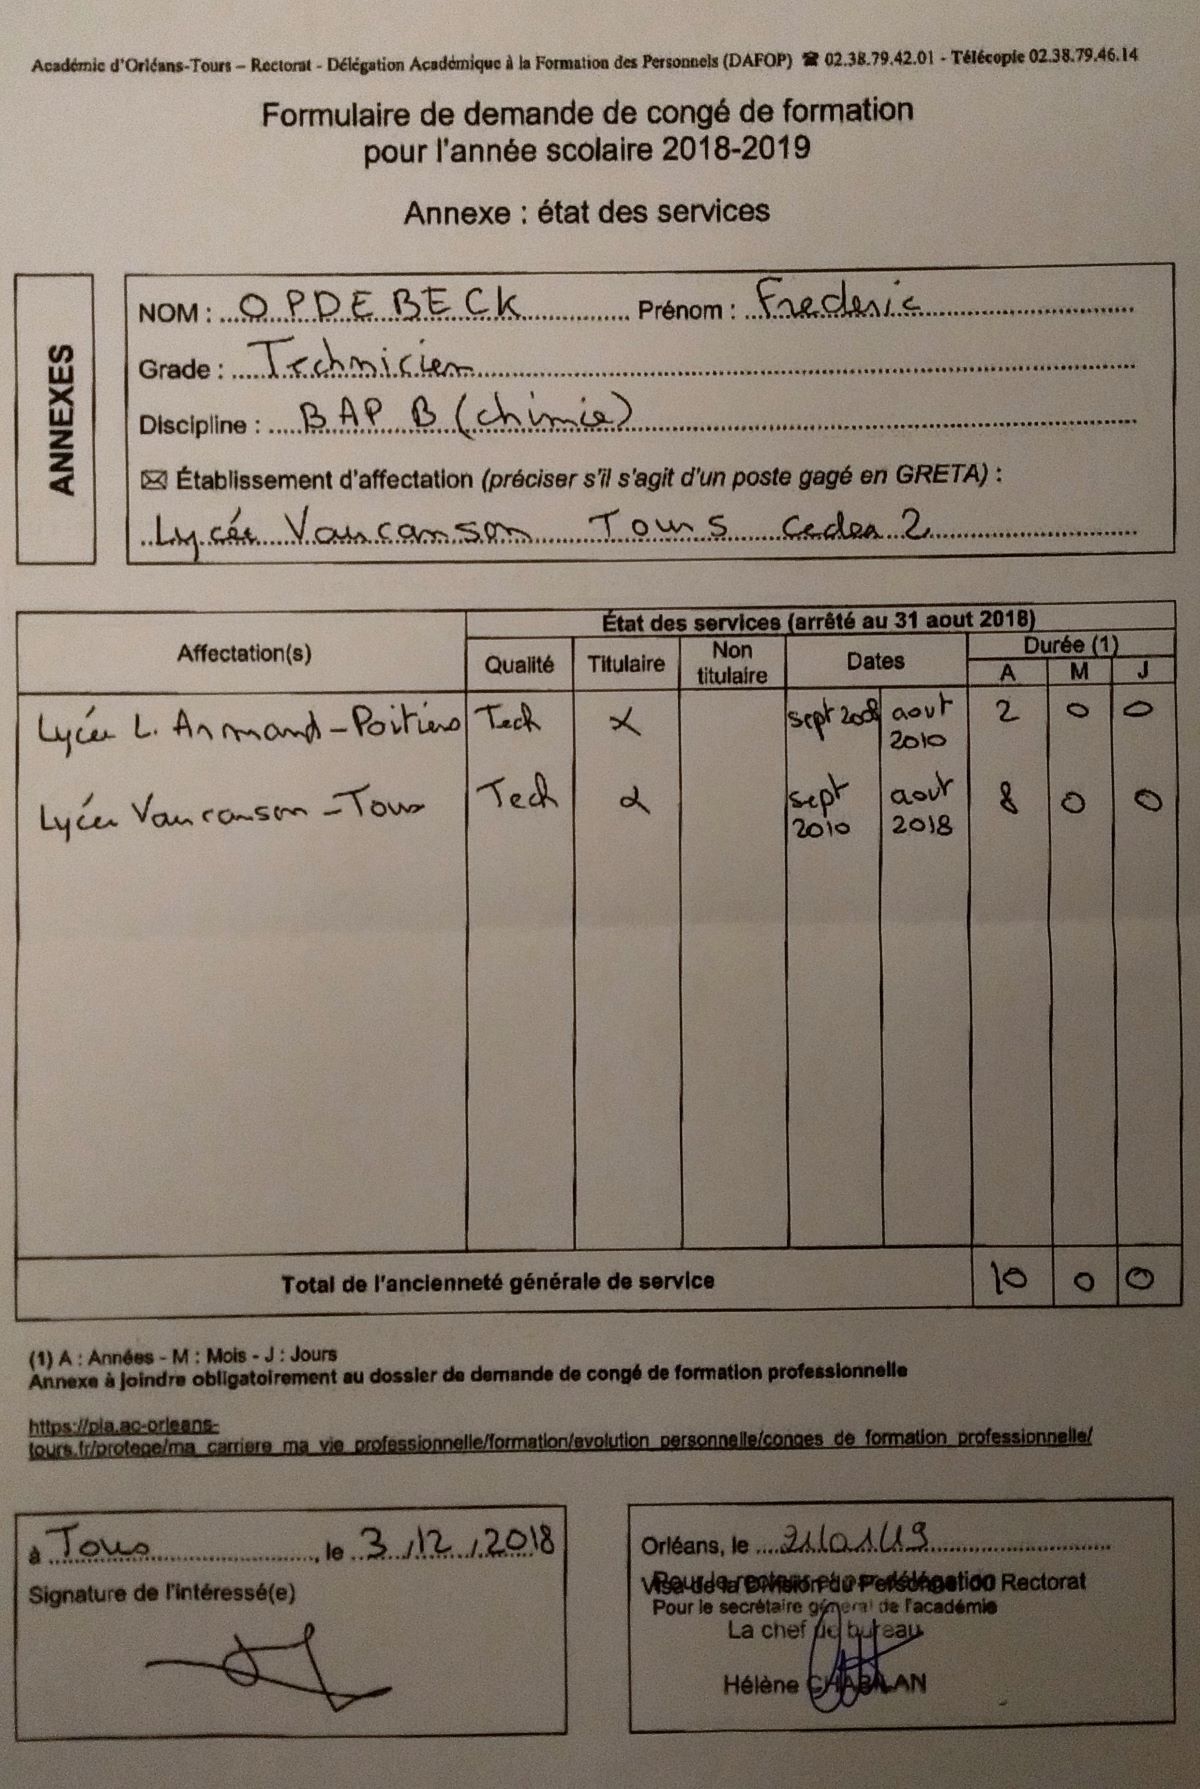 Académie d'Orléans-Tours – Rectorat - Délégation Académique à la Formation des Personnels (DAFOP) ☎ 02.38.79.42.01 - Télécopie 02.38.79.46.14
Formulaire de demande de congé de formation
pour l'année scolaire 2018-2019
Annexe : état des services
ANNEXES
NOM : OPDEBECK Prénom : Frederic
Grade : Technicien
Discipline : BAP B (chimie)
✉ Établissement d'affectation (préciser s'il s'agit d'un poste gagé en GRETA) :
Lycée Vaucanson Tours cedex 2
État des services (arrêté au 31 aout 2018)
Affectation(s) Qualité Titulaire Non titulaire Dates Durée (1)
A M J
Lycée L. Armand - Poitiers Tech X sept 2008 aout 2010 2 0 0
Lycée Vaucanson - Tours Tech X sept 2010 aout 2018 8 0 0
Total de l'ancienneté générale de service 10 0 0
(1) A : Années - M : Mois - J : Jours
Annexe à joindre obligatoirement au dossier de demande de congé de formation professionnelle
https://pia.ac-orleans-
tours.fr/protege/ma_carriere_ma_vie_professionnelle/formation/evolution_personnelle/conges_de_formation_professionnelle/
à Tours, le 3/12/2018
Signature de l'intéressé(e)
Orléans, le 21/01/19
Pour le recteur et par délégation
Visa de la Division du Personnel du Rectorat
Pour le secrétaire général de l'académie
La chef de bureau
Hélène CHABILAN